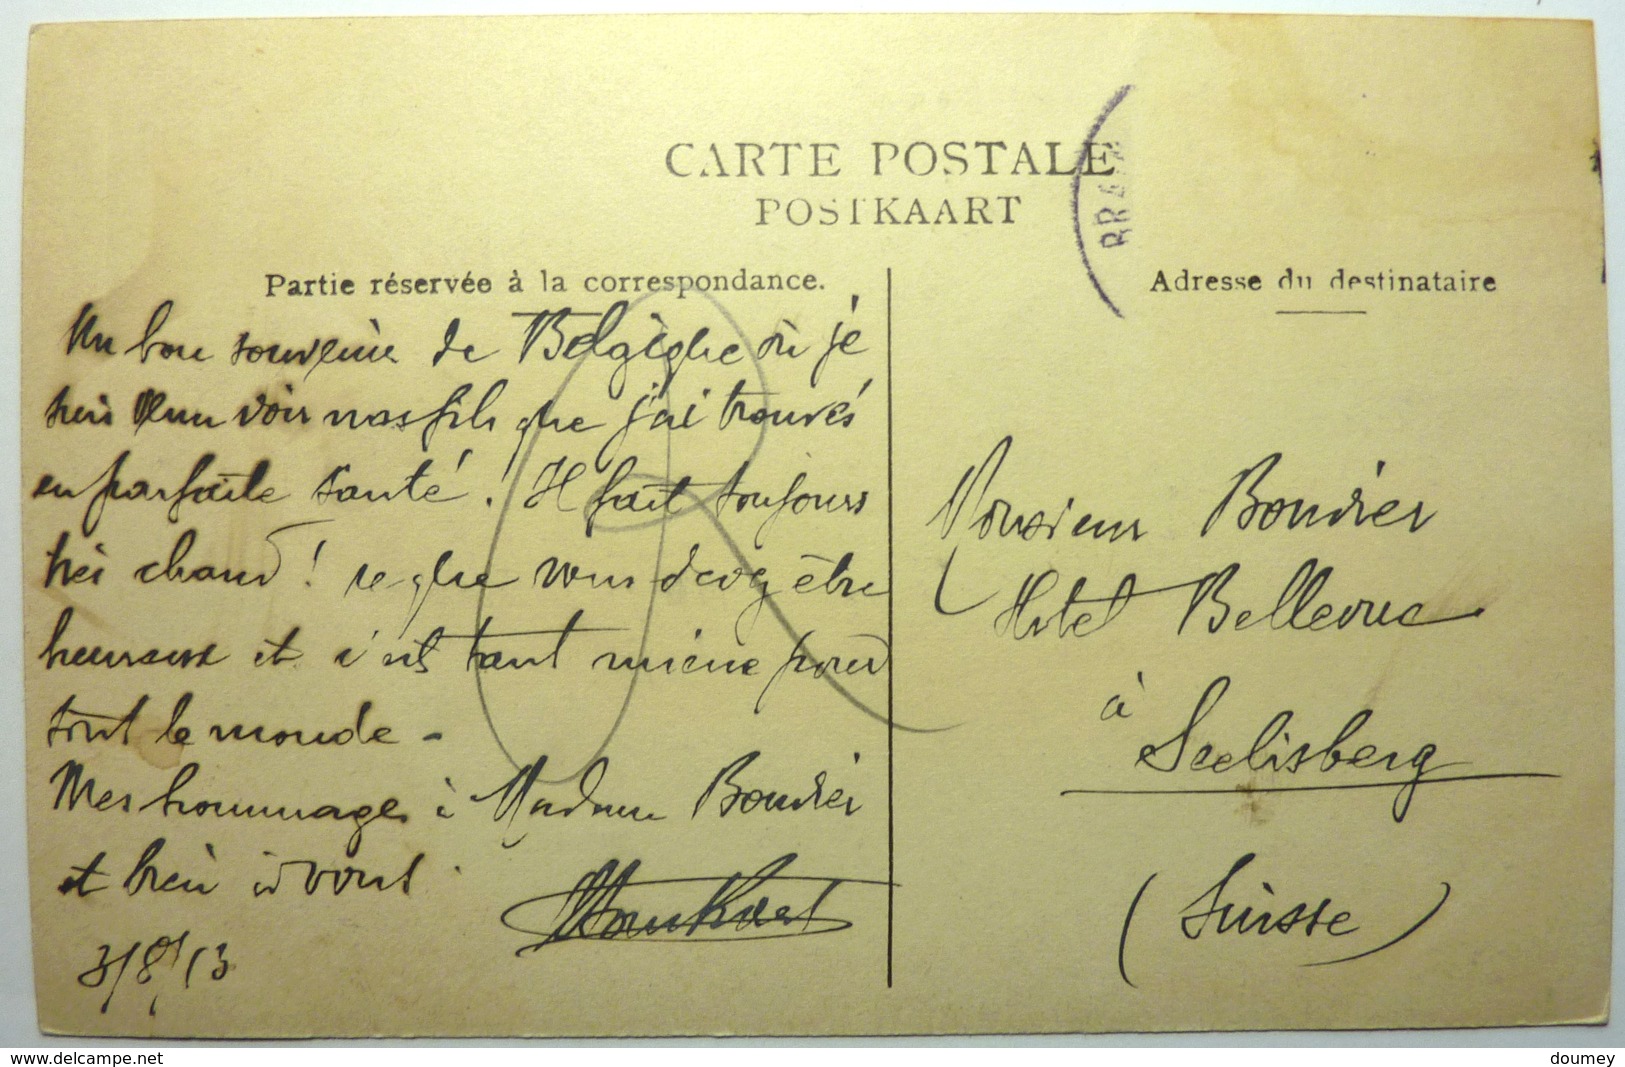 CARTE POSTALE
POSTKAART
Partie réservée à la correspondance.
Adresse du destinataire
Un bon souvenir de Belgique où je
suis venu voir nos fils que j'ai trouvés
en parfaite santé. Il fait toujours
très chaud ! ce que vous devez être
heureux et c'est tant mieux pour
tout le monde -
Mes hommages à Madame Bouvier
et bien à vous.
3/8/13
Monsieur Bouvier
Hotel Bellevue
à
Seelisberg
(Suisse)
www.delcampe.net
doumey